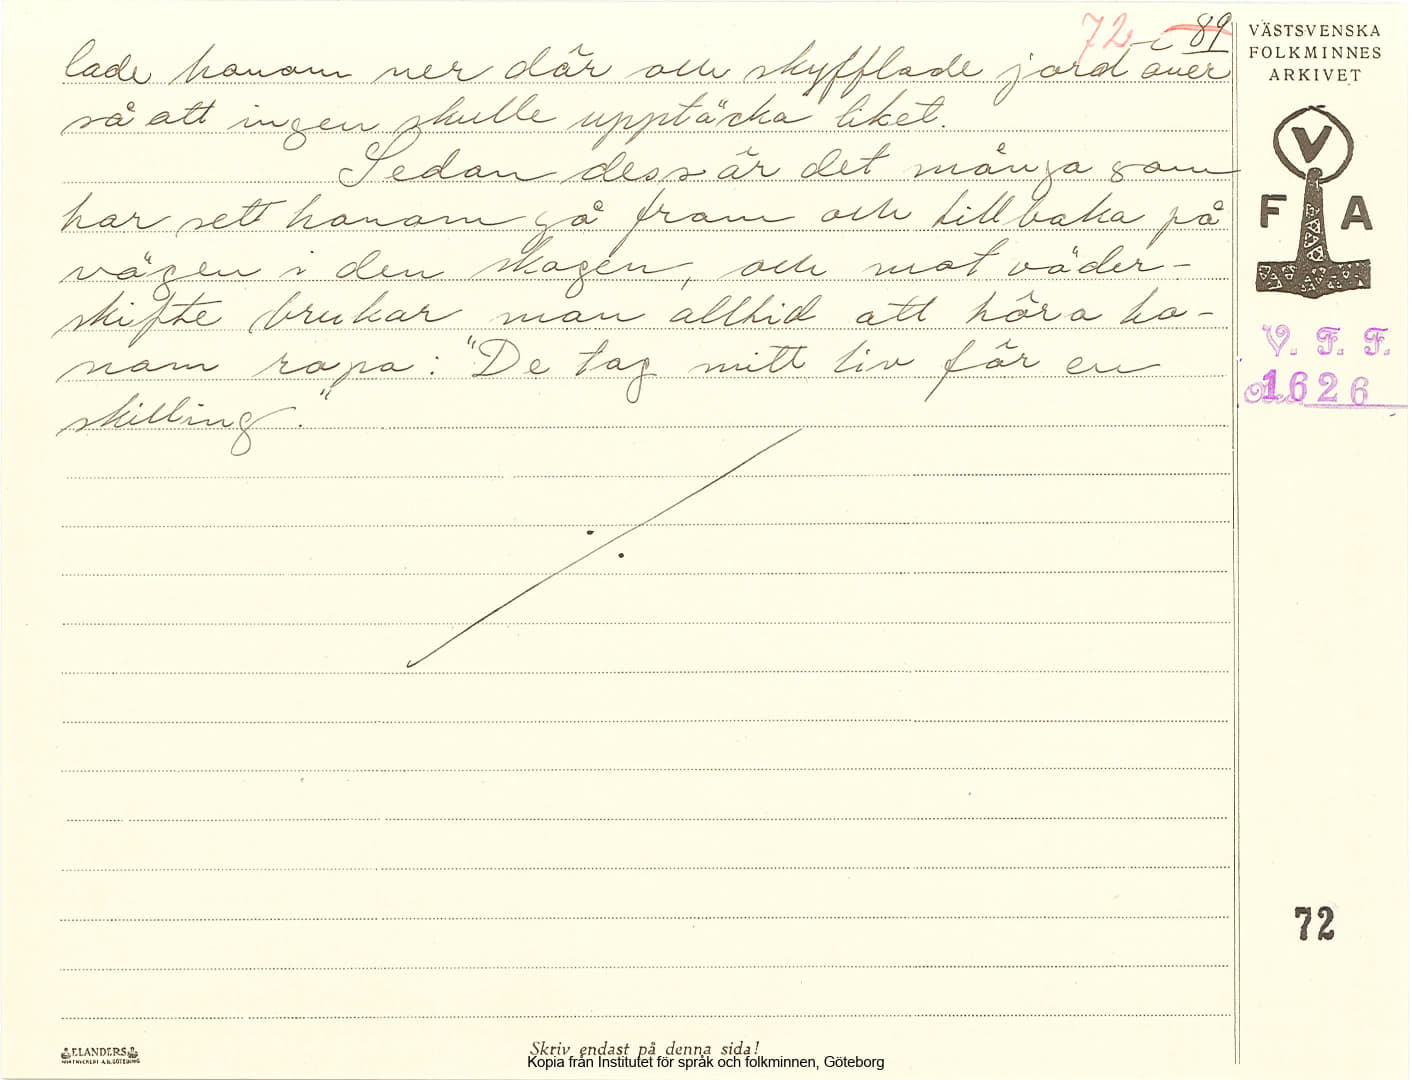 72 89
lade honom ner där och skyfflade jord över
så att ingen skulle upptäcka liket.
Sedan dess är det många som
har sett honom gå fram och tillbaka på
vägen i den skogen, och mot väder-
skifte brukar man alltid att höra ho-
nom ropa: "De tog mitt liv för en
skilling."
VÄSTSVENSKA
FOLKMINNES
ARKIVET
V
F A
V. F. F.
1626
72
ELANDERS
Skriv endast på denna sida!
Kopia från Institutet för språk och folkminnen, Göteborg